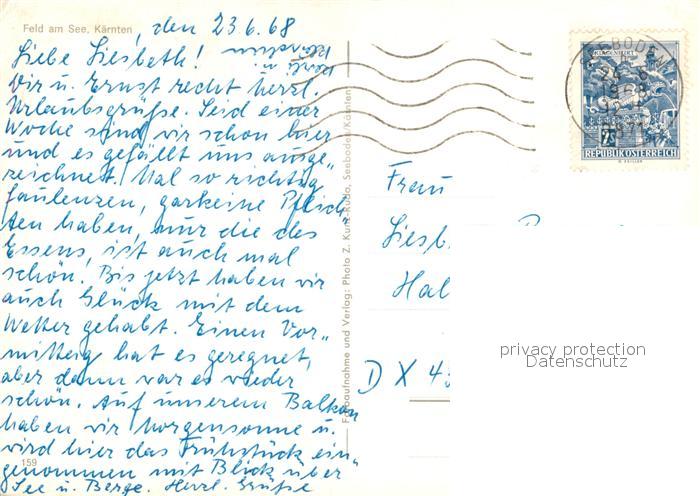 Feld am See, Kärnten
, den 23.6.68
Liebe Liesbeth!
Dir u. Ernst recht herzl.
Urlaubsgrüße. Seid einer
Woche sind wir schon hier
und es gefällt uns ausge„
zeichnet. Mal so richtig
faulenzen, garkeine Pflich
ten haben, nur die des
Essens, ist auch mal
schön. Bis jetzt haben wir
auch Glück mit dem
Wetter gehabt. Einen Vor„
mittag hat es geregnet,
aber dann war es wieder
schön. Auf unserem Balkon
haben wir Morgensonne u.
wird hier das Frühstück ein„
genommen mit Blick über
See u. Berge. Herzl. Grüße
159
Farbaufnahme und Verlag: Photo Z. Kurz-Ruda, Seeboden/Kärnten
SEEBODEN
24.6
1968
9871
KLAGENFURT
REPUBLIK ÖSTERREICH
Frau
Liesb
Hal
D X 45
privacy protection
Datenschutz